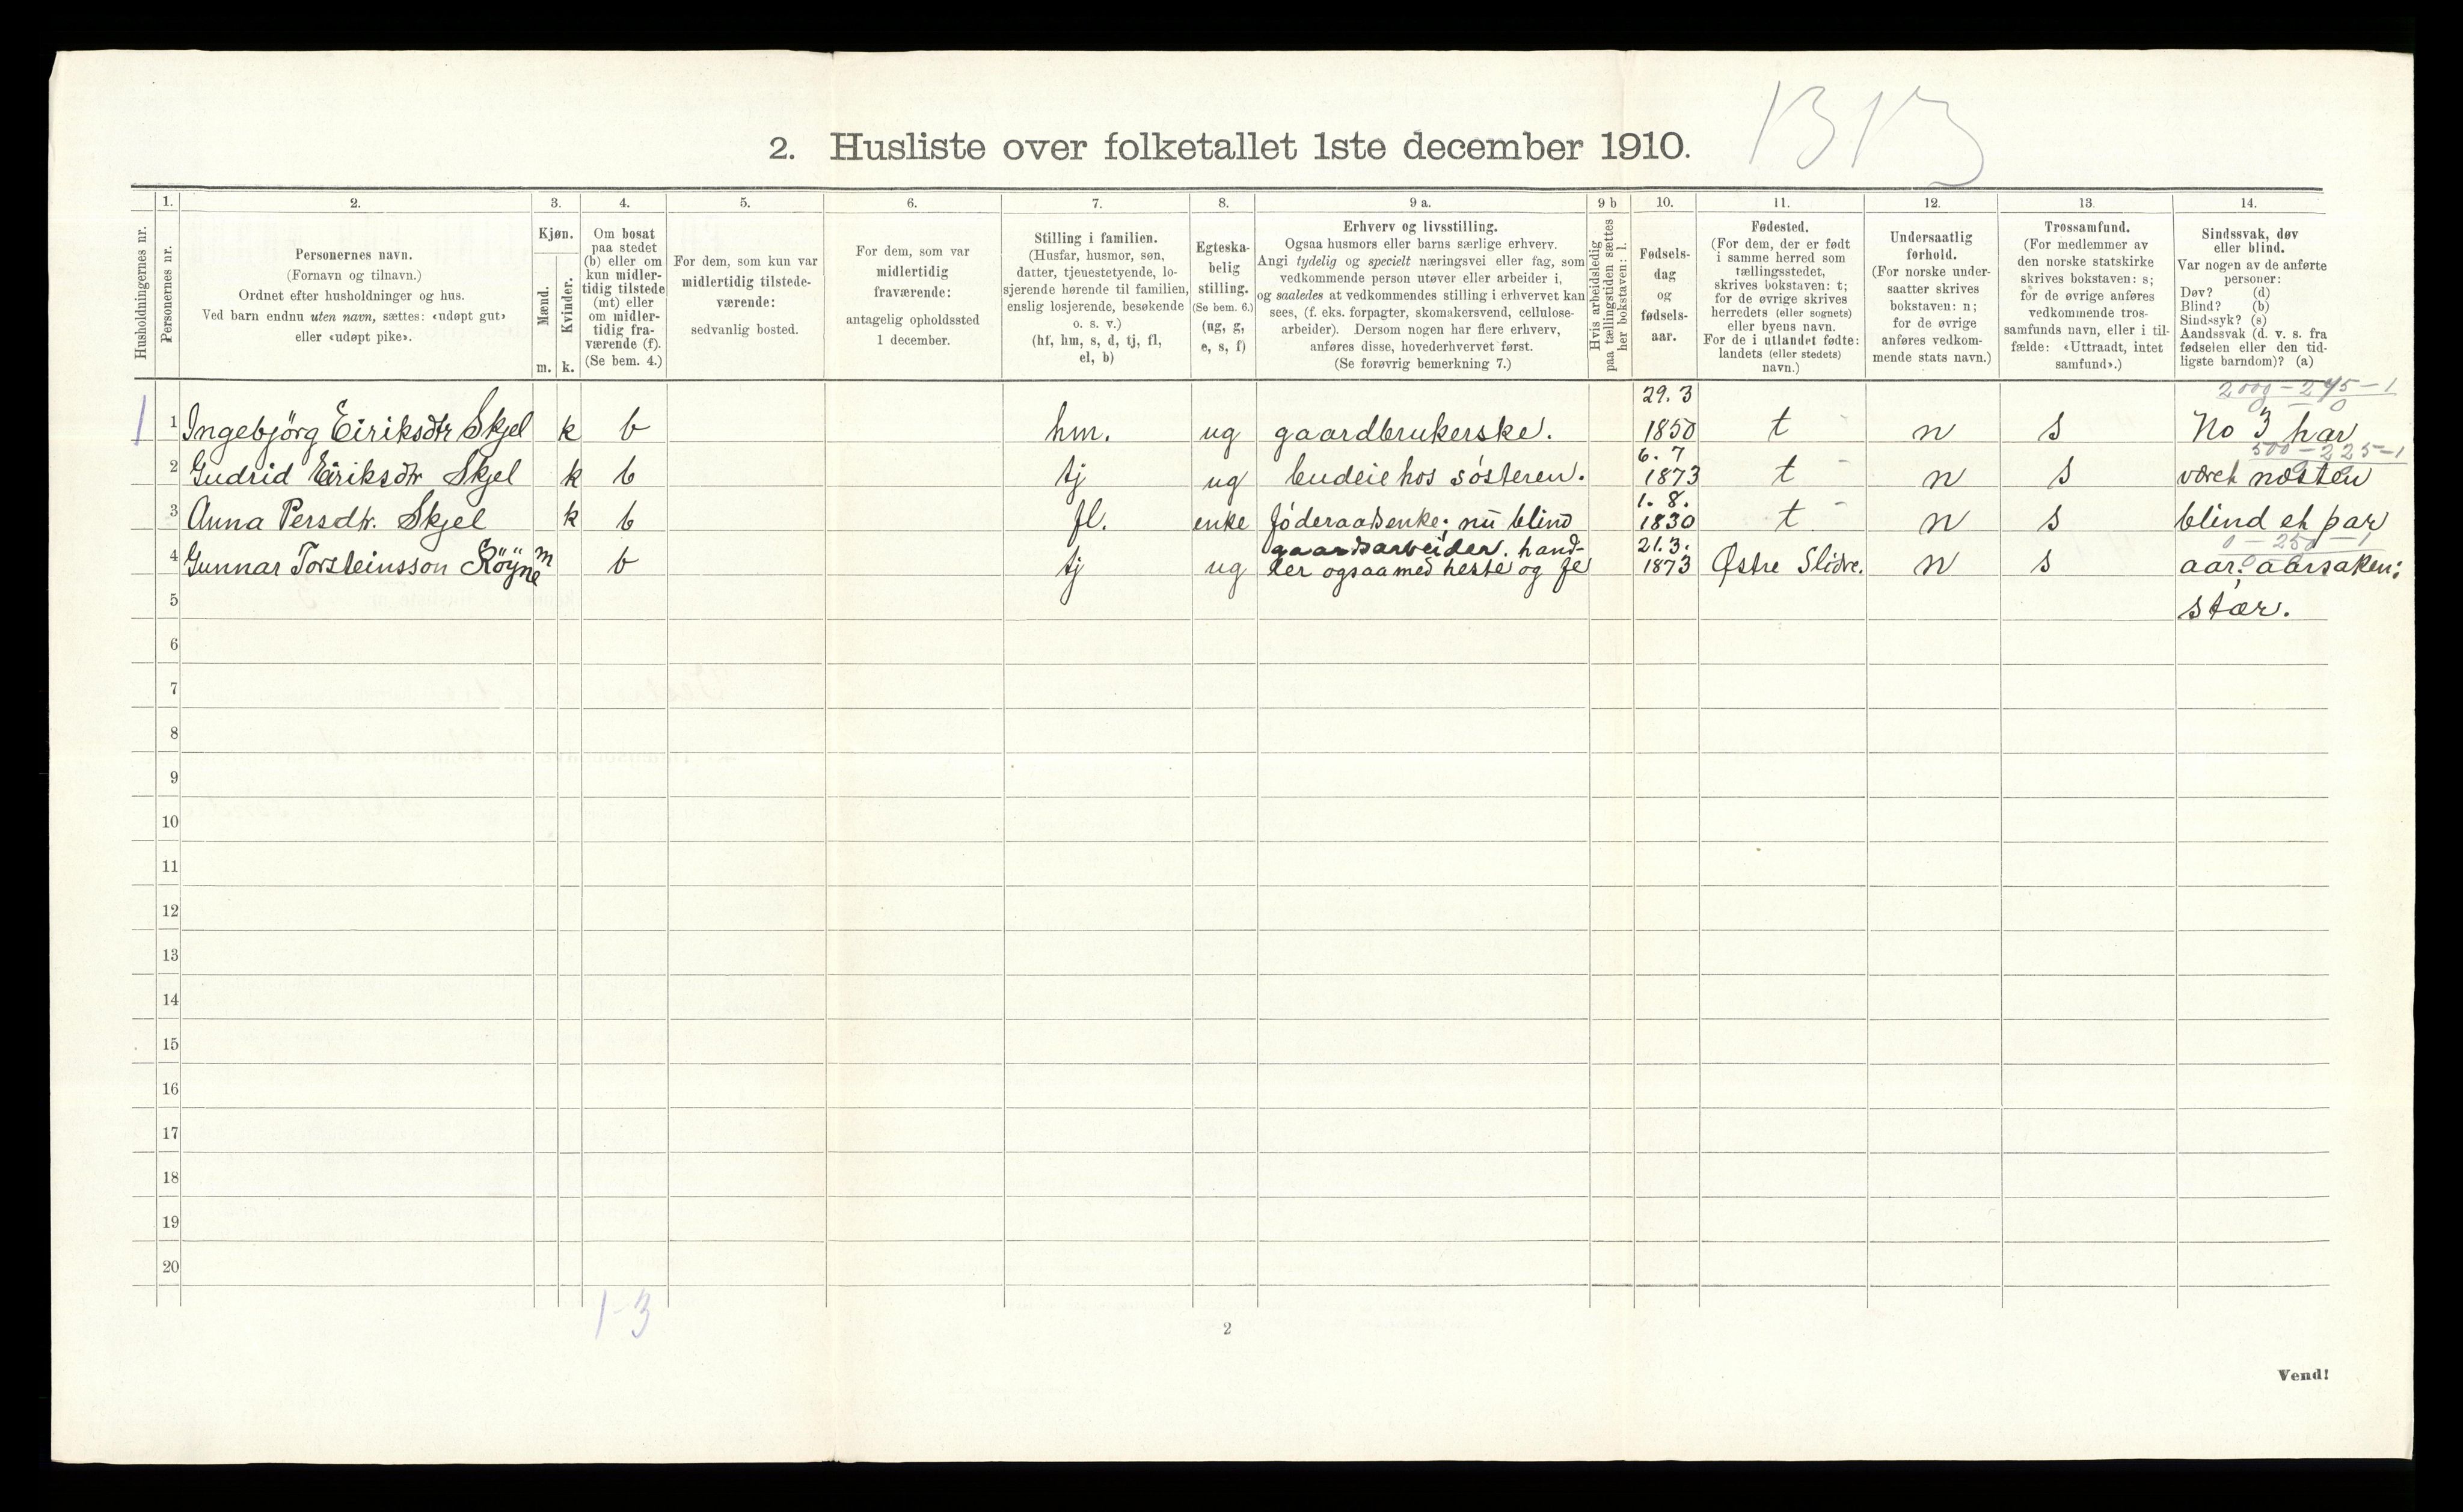 1313
2. Husliste over folketallet 1ste december 1910.
Husholdningernes nr.
1. Personernes nr.
2. Personernes navn.
(Fornavn og tilnavn.)
Ordnet efter husholdninger og hus.
Ved barn endnu uten navn, sættes: «udøpt gut»
eller «udøpt pike».
3. Kjøn.
Mænd. m.
Kvinder. k.
4. Om bosat
paa stedet
(b) eller om
kun midler-
tidig tilstede
(mt) eller
om midler-
tidig fra-
værende (f).
(Se bem. 4.)
5. For dem, som kun var
midlertidig tilstede-
værende:
sedvanlig bosted.
6. For dem, som var
midlertidig
fraværende:
antagelig opholdssted
1 december.
7. Stilling i familien.
(Husfar, husmor, søn,
datter, tjenestetyende, lo-
sjerende hørende til familien,
enslig losjerende, besøkende
o. s. v.)
(hf, hm, s, d, tj, fl,
el, b)
8. Egteska-
belig
stilling.
(Se bem. 6.)
(ug, g,
e, s, f)
9 a. Erhverv og livsstilling.
Ogsaa husmors eller barns særlige erhverv.
Angi tydelig og specielt næringsvei eller fag, som
vedkommende person utøver eller arbeider i,
og saaledes at vedkommendes stilling i erhvervet kan
sees, (f. eks. forpagter, skomakersvend, cellulose-
arbeider). Dersom nogen har flere erhverv,
anføres disse, hovederhvervet først.
(Se forøvrig bemerkning 7.)
9 b Hvis arbeidsledig
paa tællingstiden sættes
her bokstaven: l.
10. Fødsels-
dag
og
fødsels-
aar.
11. Fødested.
(For dem, der er født
i samme herred som
tællingsstedet,
skrives bokstaven: t;
for de øvrige skrives
herredets (eller sognets)
eller byens navn.
For de i utlandet fødte:
landets (eller stedets)
navn.)
12. Undersaatlig
forhold.
(For norske under-
saatter skrives
bokstaven: n;
for de øvrige
anføres vedkom-
mende stats navn.)
13. Trossamfund.
(For medlemmer av
den norske statskirke
skrives bokstaven: s;
for de øvrige anføres
vedkommende tros-
samfunds navn, eller i til-
fælde: «Uttraadt, intet
samfund».)
14. Sindssvak, døv
eller blind.
Var nogen av de anførte
personer:
Døv? (d)
Blind? (b)
Sindssyk? (s)
Aandssvak (d. v. s. fra
fødselen eller den tid-
ligste barndom)? (a)
1 1 Ingebjörg Eiriksdtr Skjel k b hm. ug gaardbrukerske. 29. 3 1850 t n s No 3 har
2 Gudrid Eiriksdtr Skjel k b tj ug budeie hos sösteren. 6. 7 1873 t n s været næsten
500 - 225 - 1
3 Anna Persdtr. Skjel k b fl. enke föderaadsenke; nu blind 1. 8. 1830 t n s blind et par
0 - 250 - 1
4 Gunnar Torsteinsson Röyne m b tj ug gaardsarbeider. hand-
ler ogsaa med heste og fe 21. 3. 1873 Østre Slidre. n s aar; aarsaken:
5 stær.
6
7
8
9
10
11
12
13
14
15
16
17
18
19
20
1-3
2
Vend!